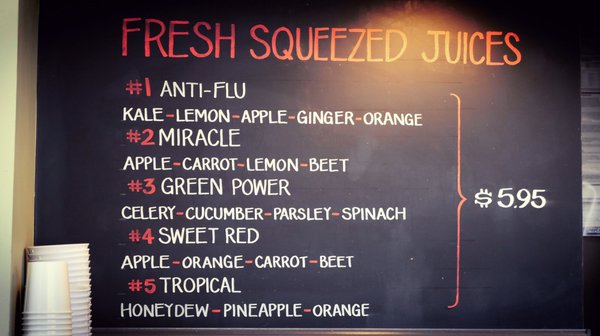 FRESH SQUEEZED JUICES
#1 ANTI-FLU
KALE-LEMON-APPLE-GINGER-ORANGE
#2 MIRACLE
APPLE-CARROT-LEMON-BEET
#3 GREEN POWER
CELERY-CUCUMBER-PARSLEY-SPINACH
#4 SWEET RED
APPLE-ORANGE-CARROT-BEET
#5 TROPICAL
HONEYDEW-PINEAPPLE-ORANGE
$5.95